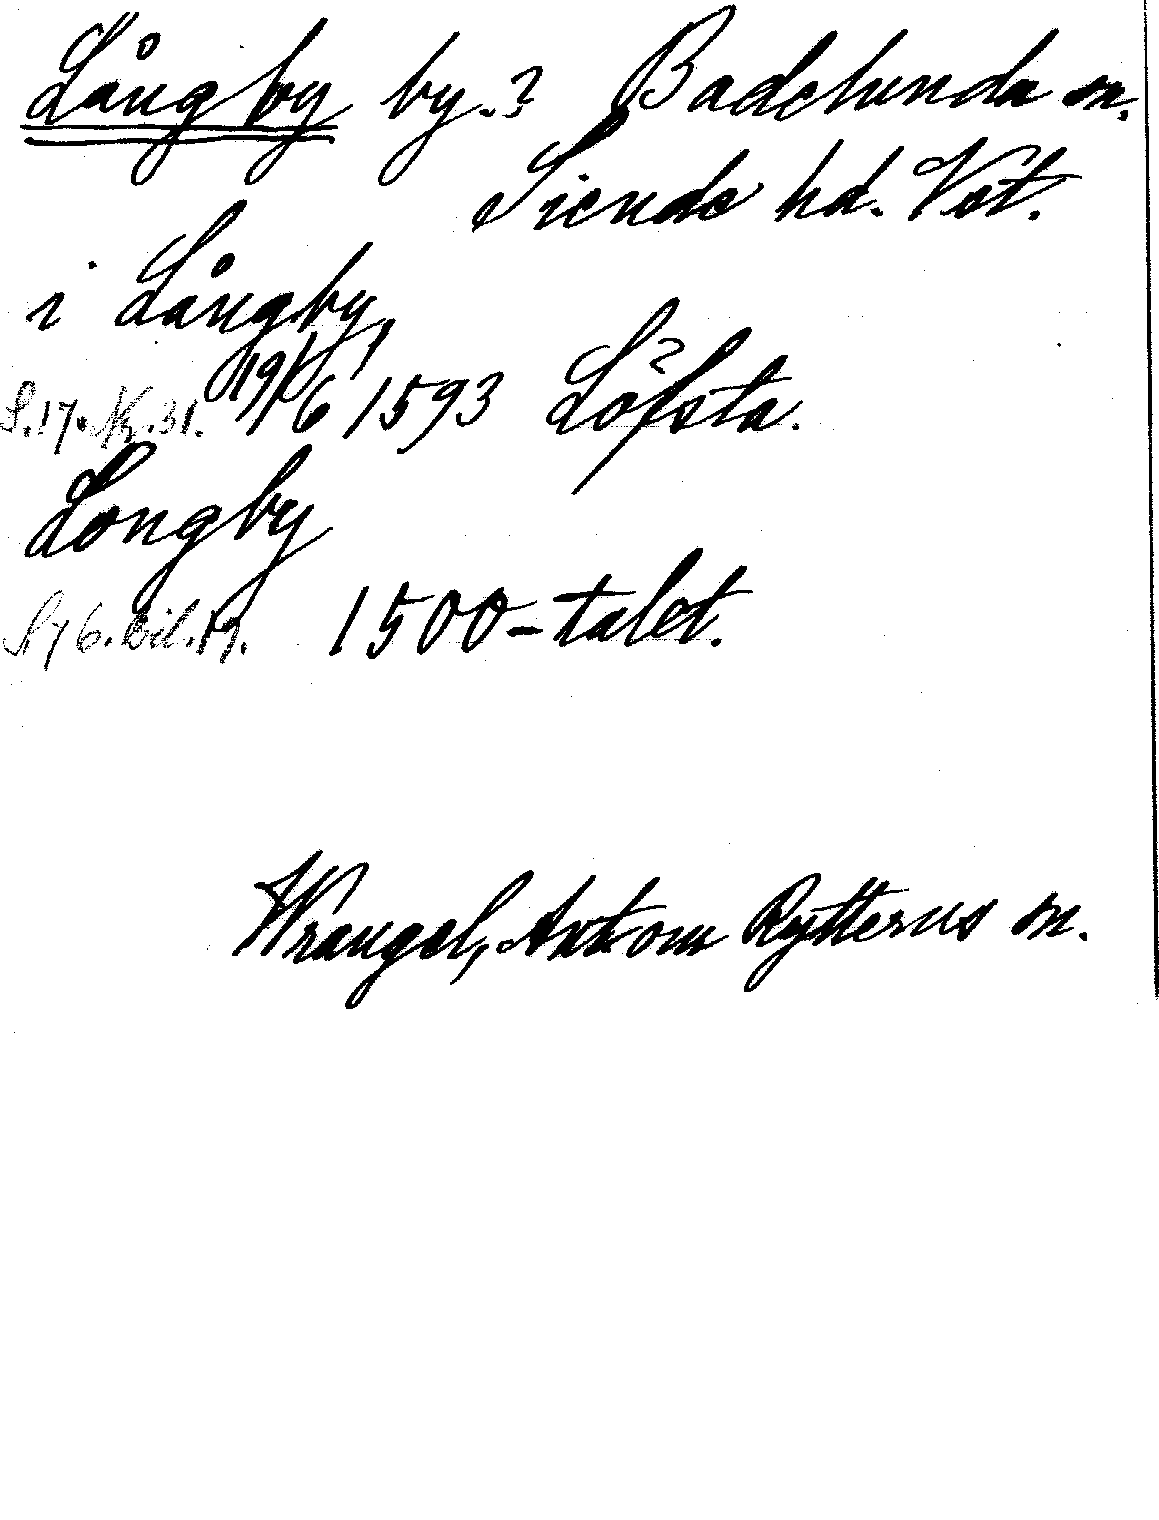 Långby by.? Badelunda sn.
Siende hd. Vst.
i Långby,
S.17. Nr. 31. 19/6 1593 Löfsta.
Longby
S. 76. bil. 17. 1500-talet.
Wrangel, Ant om Rytterns sn.